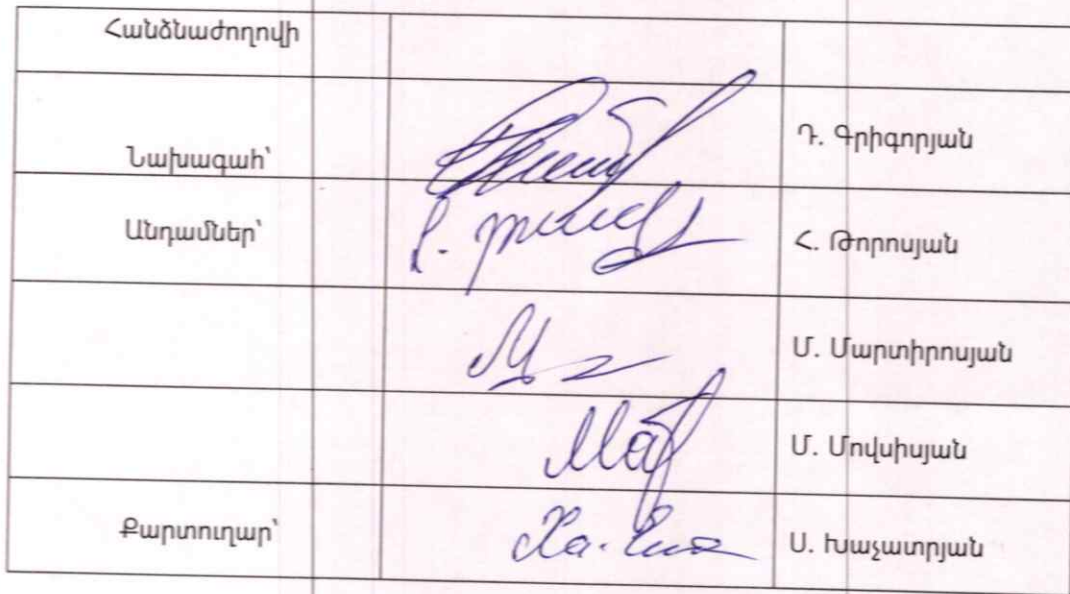 Հանձնաժողովի
Նախագահ՝ Դ. Գրիգորյան
Անդամներ՝ Հ. Թորոսյան
Մ. Մարտիրոսյան
Մ. Մովսիսյան
Քարտուղար՝ Ս. Խաչատրյան